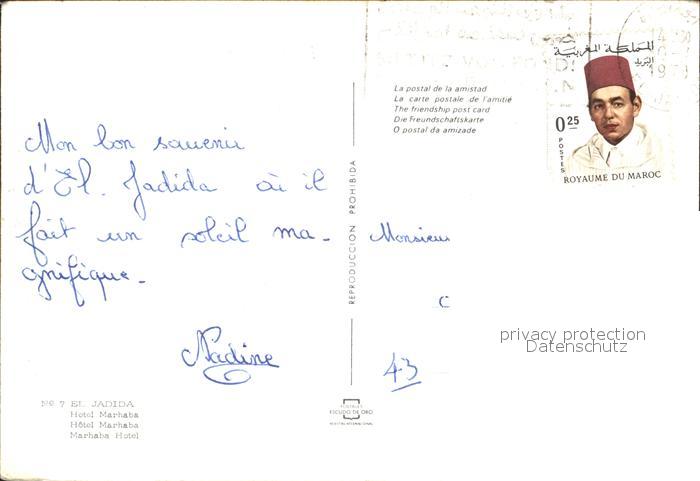 Mon bon souvenir
d'El. Jadida où il
fait un soleil ma-
gnifique.
Nadine
Nº 7 EL JADIDA
Hotel Marhaba
Hôtel Marhaba
Marhaba Hotel
REPRODUCCION PROHIBIDA
POSTALES
ESCUDO DE ORO
La postal de la amistad
La carte postale de l'amitié
The friendship post card
Die Freundschaftskarte
O postal da amizade
المملكة المغربية
البريد
0.25
POSTES
ROYAUME DU MAROC
Monsieur
C
43
privacy protection
Datenschutz